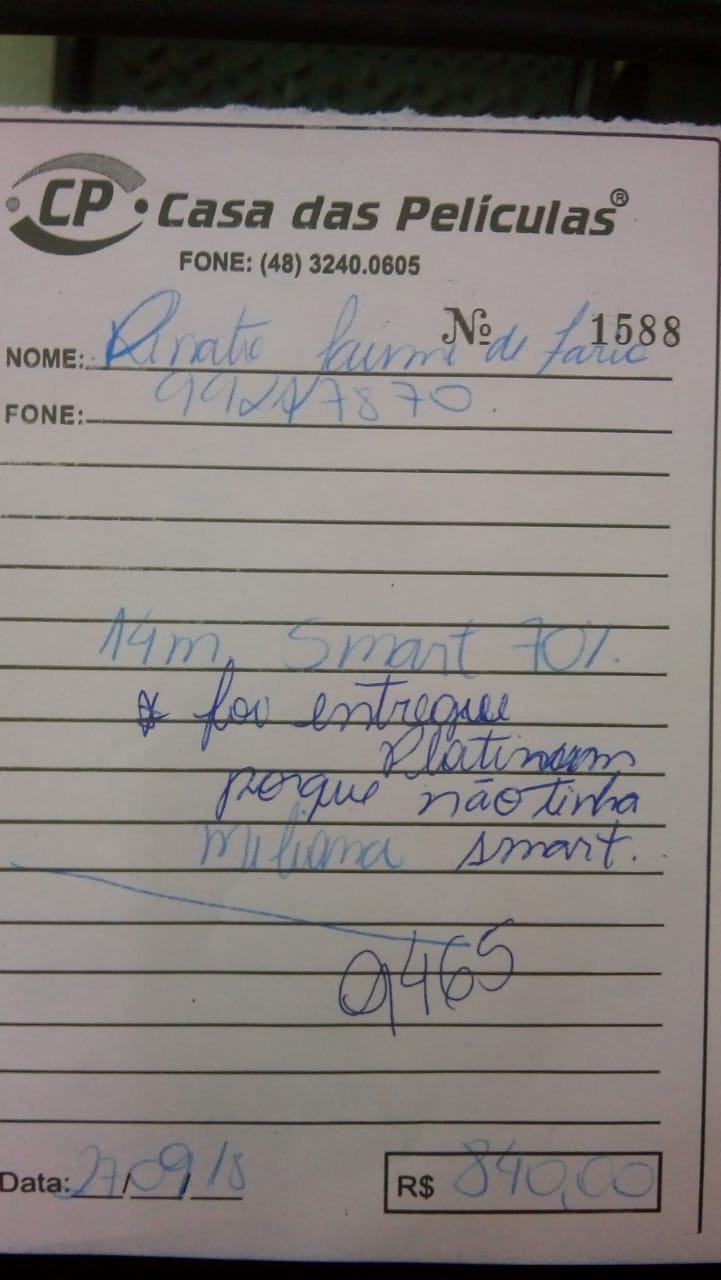 CP Casa das Películas®
FONE: (48) 3240.0605
Nº 1588
NOME: Renato de Faria
FONE: 99217870.
14m Smart 70%.
* foi entregue
Platinum
porque não tinha
smart.
9465
Data: 27/09/18
R$ 840,00